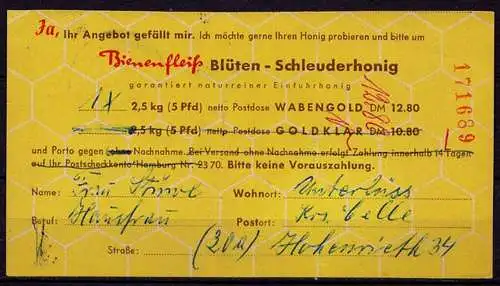 Ja, Ihr Angebot gefällt mir. Ich möchte gerne Ihren Honig probieren und bitte um
Bienenfleiß Blüten - Schleuderhonig
garantiert naturreiner Einfuhrhonig
1x 2,5 kg (5 Pfd) netto Postdose WABENGOLD DM 12.80
2,5 kg (5 Pfd) netto Postdose GOLDKLAR DM 10.80
171689
und Porto gegen ohne Nachnahme. Bei Versand ohne Nachnahme erfolgt Zahlung innerhalb 14 Tagen
auf Ihr Postscheckkonto Hamburg Nr. 2370. Bitte keine Vorauszahlung.
Name: Frau Wohnort: Unterlüss
Beruf: Hausfrau Postort: Krs. Celle
Straße: (20a) Hohenrieth 34